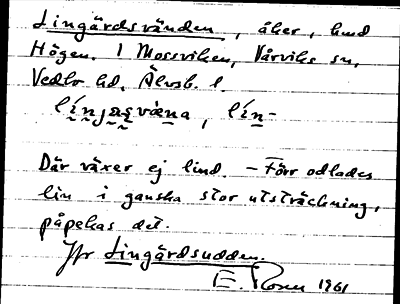 Lingärdsvänden, åker, hmd
Högen. I Mossviken, Vårviks sn,
Vedbo hd, Älvsb. l.
lín-
Där växer ej lind. - Förr odlades
lin i ganska stor utsträckning,
påpekas det.
Jfr Lingärdsudden.
E. Rosén 1961